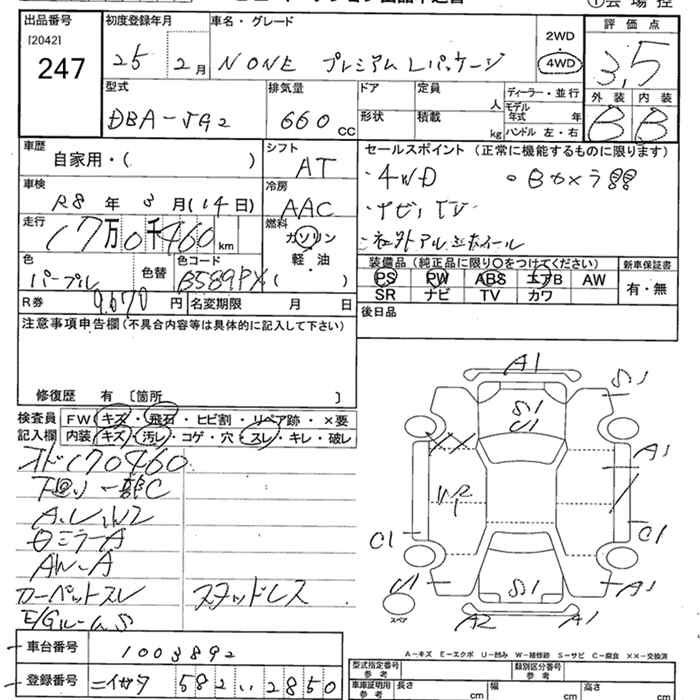 出品番号 初度登録年月 車名・グレード 評価点
[2042] 247
25年 2月 NONE プレミアム Lパッケージ 2WD 4WD 3.5
外装 内装
B B
型式 排気量 ドア 定員 人 ディーラー・並行
DBA-JG2 660 CC 形状 積載 kg モデル年式 年
ハンドル 左・右
車歴 シフト セールスポイント (正常に機能するものに限ります)
自家用・( ) AT ・4WD ・Bカメラ
車検 冷房 ・ナビ, TV
R8年 3月(14日) AAC ・社外アルミホイール
走行 燃料
17万0千460km ガソリン
軽・油
( )
色 色替 色コード 装備品 (純正品に限り○をつけてください) 新車保証書
パープル B589PX PS PW ABS エアB AW 有・無
SR ナビ TV カワ
R券 9,670円 名変期限 月 日 後日品
注意事項申告欄(不具合内容等は具体的に記入して下さい)
修復歴 有 [箇所 ]
検査員 FW キズ・飛石・ヒビ割・リペア跡・×要
記入欄 内装 キズ・汚レ・コゲ・穴・スレ・キレ・破レ
オド170460
下廻り一部C
A.レ,W2
ミラーA
AW-A
カーペットスレ スタッドレス
E/GルームS
A1
S1
S1
U1
A1
W2
C1
C1
U1
S1
A1
スペア
A2
A1
A-キズ E-エクボ U-凹み W-補修跡 S-サビ C-腐食 ××-交換済
車台番号 1003892
登録番号 ニイガタ 582 い 2850
型式指定番号 参考 類別区分番号 参考
車庫証明用 参考 長さ cm 幅 cm 高さ cm